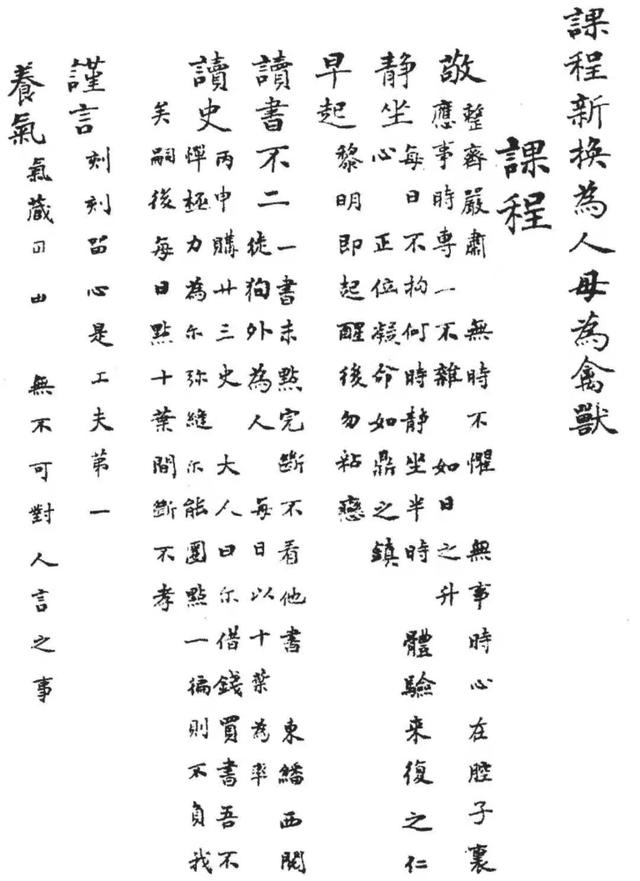 課程新換為人毋為禽獸
課程
敬 整齊嚴肅 無時不懼 無事時心在腔子裏
應事時專一不雜 如日之升
靜坐 每日不拘何時靜坐半時 體驗來復之仁
心正位凝命如鼎之鎮
早起 黎明即起醒後勿粘戀
讀書不二 一書未點完斷不看他書 東繙西閱
徒狥外為人 每日以十葉為率
讀史 丙申購廿三史 大人曰尔借錢買書吾不
惮極力為尔弥縫尔能圈點一徧則不負我
矣嗣後每日點十葉間斷不孝
謹言 刻刻留心是工夫第一
養氣 氣藏 無不可對人言之事